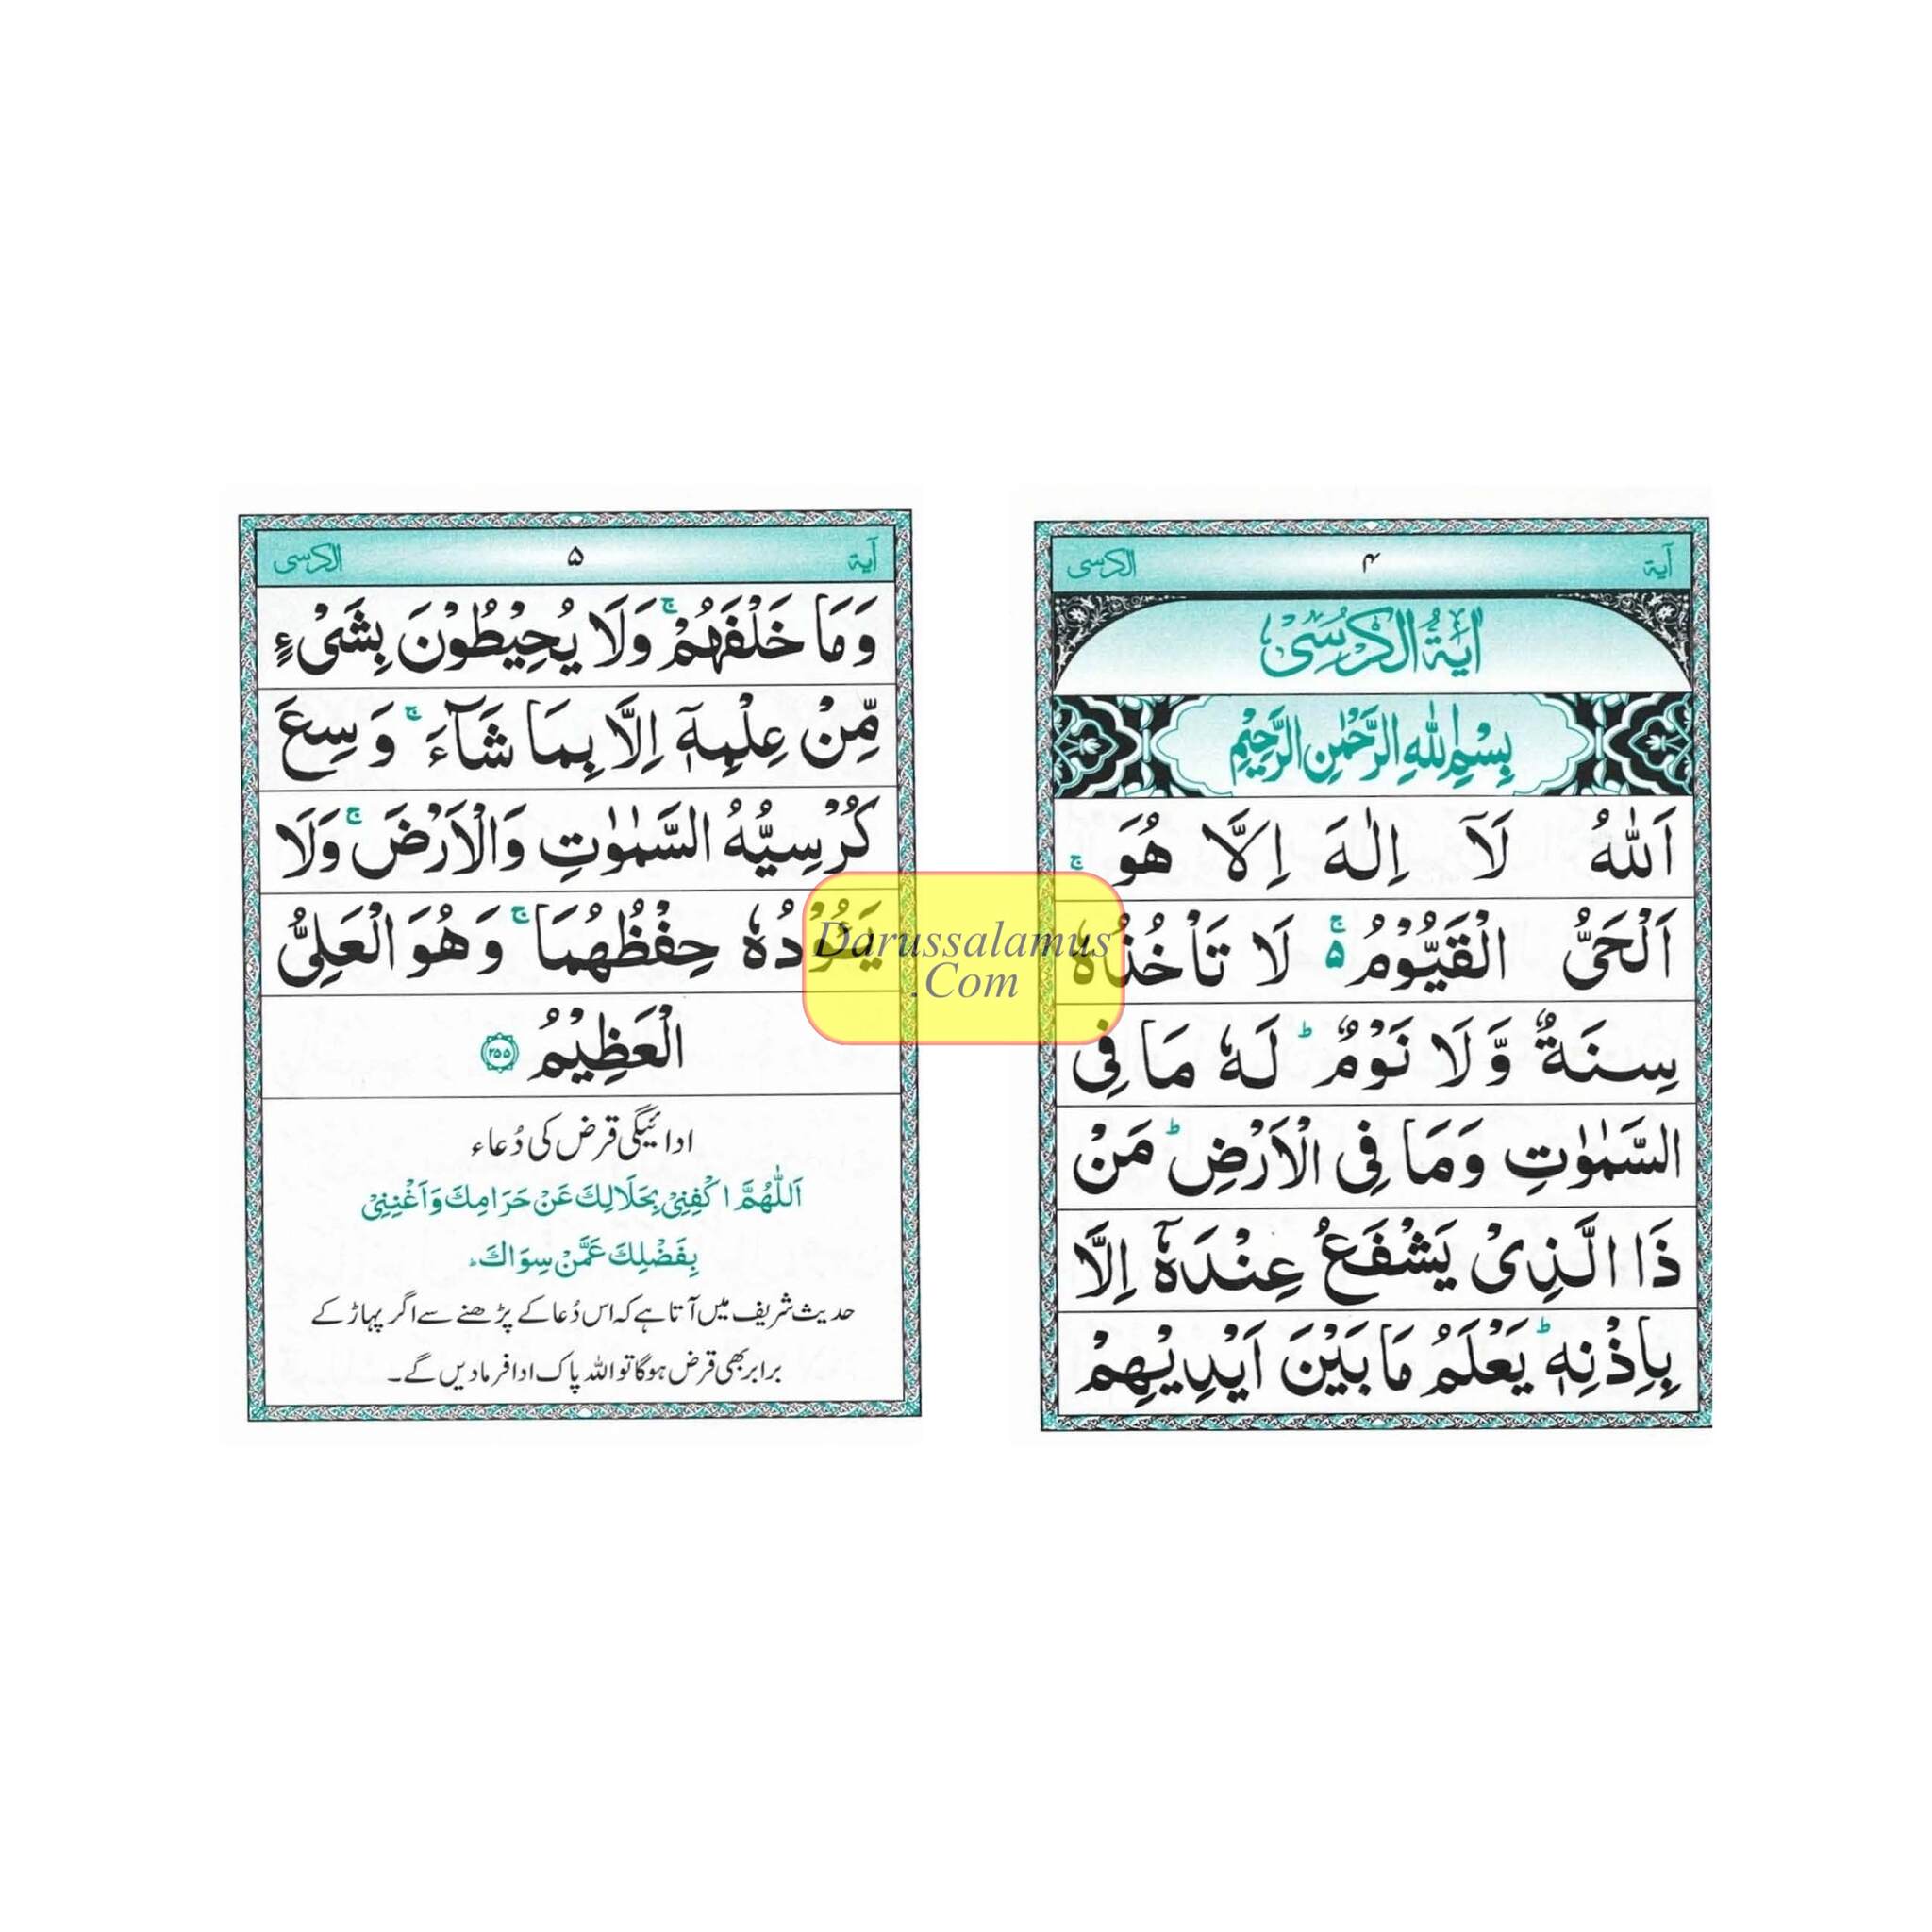 آية ۴ الكرسى
اٰيَةُ الْكُرْسِىْ
بِسْمِ اللهِ الرَّحْمٰنِ الرَّحِيْمِ
اَللهُ لَآ اِلٰهَ اِلَّا هُوَ ۚ
اَلْحَىُّ الْقَيُّوْمُ ۵ۚ لَا تَاْخُذُهٗ
سِنَةٌ وَّلَا نَوْمٌ ؕ لَهٗ مَا فِى
السَّمٰوٰتِ وَمَا فِى الْاَرْضِ ؕ مَنْ
ذَا الَّذِىْ يَشْفَعُ عِنْدَهٗٓ اِلَّا
بِاِذْنِهٖ ؕ يَعْلَمُ مَا بَيْنَ اَيْدِيْهِمْ
آية ۵ الكرسى
وَمَا خَلْفَهُمْ ۚ وَلَا يُحِيْطُوْنَ بِشَىْءٍ
مِّنْ عِلْمِهٖٓ اِلَّا بِمَا شَآءَ ۚ وَسِعَ
كُرْسِيُّهُ السَّمٰوٰتِ وَالْاَرْضَ ۚ وَلَا
يَـُٔوْدُهٗ حِفْظُهُمَا ۚ وَهُوَ الْعَلِىُّ
الْعَظِيْمُ ۲۵۵
ادائیگی قرض کی دُعاء
اَللّٰهُمَّ اكْفِنِىْ بِحَلَالِكَ عَنْ حَرَامِكَ وَاَغْنِنِىْ
بِفَضْلِكَ عَمَّنْ سِوَاكَ ؕ
حدیث شریف میں آتا ہے کہ اس دُعا کے پڑھنے سے اگر پہاڑ کے
برابر بھی قرض ہوگا تو اللہ پاک ادا فرمادیں گے۔
Darussalamus
.Com